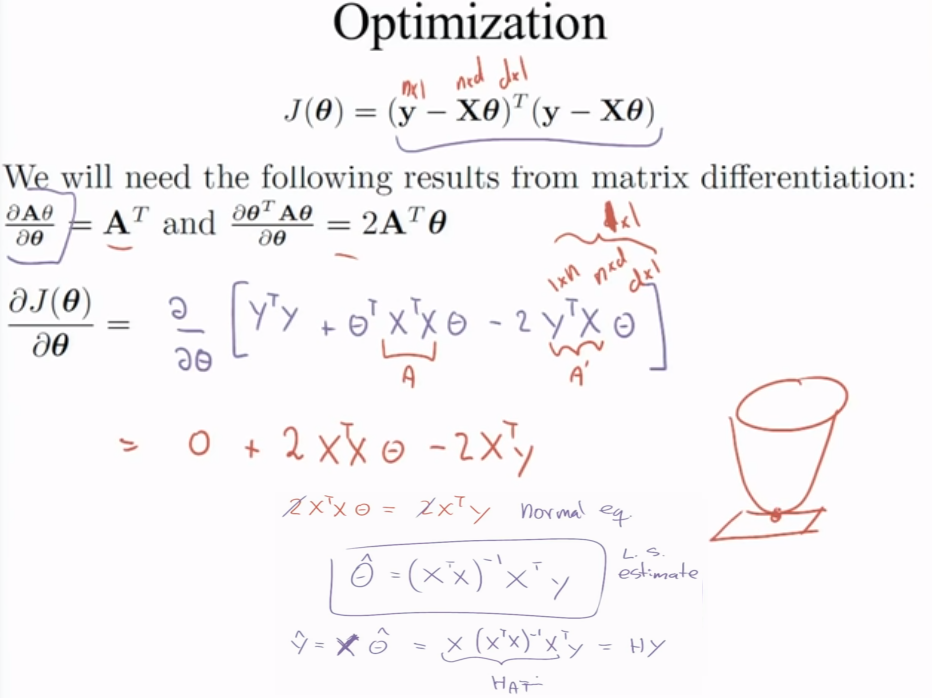 Optimization
n×1 n×d d×1
J(θ) = (y − Xθ)ᵀ(y − Xθ)
We will need the following results from matrix differentiation:
∂Aθ/∂θ = Aᵀ and ∂θᵀAθ/∂θ = 2Aᵀθ
1×1
1×n n×d d×1
∂J(θ)/∂θ = ∂/∂θ [YᵀY + θᵀXᵀXθ − 2YᵀXθ]
A A'
= 0 + 2XᵀXθ − 2Xᵀy
2XᵀXθ = 2Xᵀy normal eq.
θ̂ = (XᵀX)⁻¹Xᵀy L.S. estimate
ŷ = Xθ̂ = X(XᵀX)⁻¹Xᵀy = HY
HAT